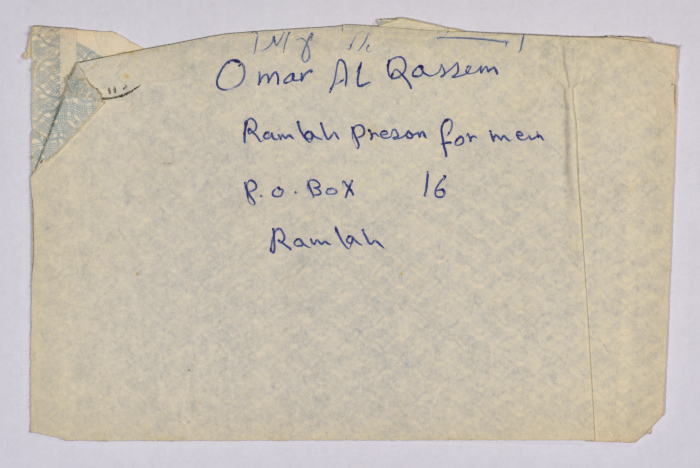 Omar AL Qassem
Ramlah preson for men
P.O.Box 16
Ramlah